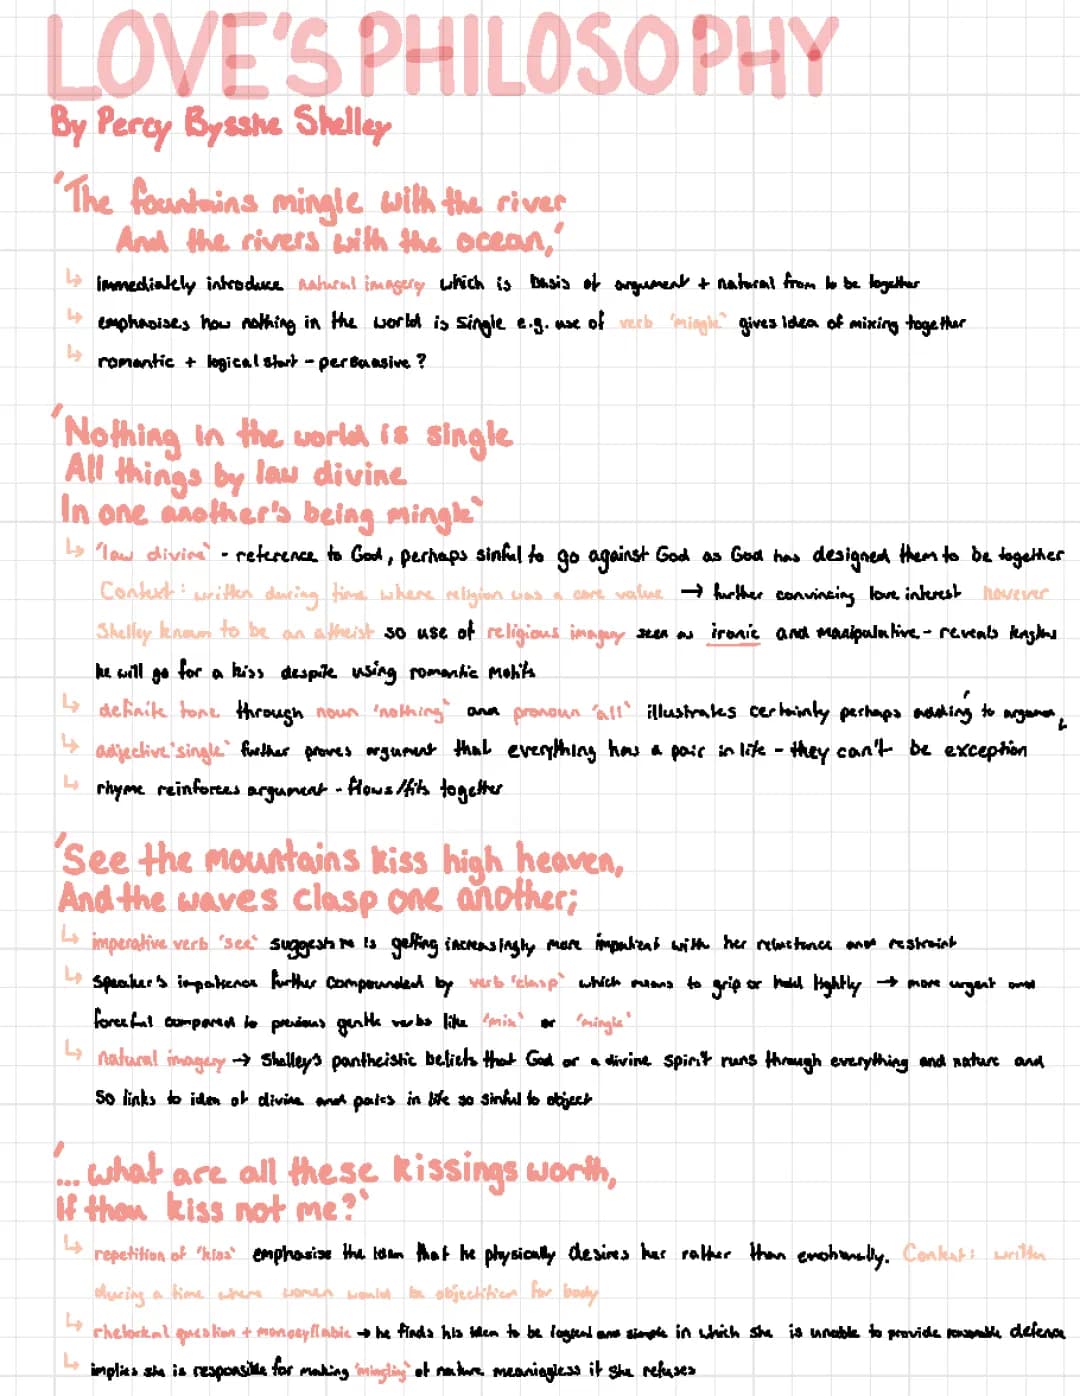 LOVE'S PHILOSOPHY
By Percy Bysshe Shelley
'The fountains mingle with the river
And the rivers with the ocean,'
↳ immediately introduce natural imagery which is basis of argument + natural from to be together
↳ emphasises how nothing in the world is single e.g. use of verb 'mingle' gives idea of mixing together
↳ romantic + logical start - persuasive?
'Nothing in the world is single
All things by law divine
In one another's being mingle'
↳ 'law divine' - reference to God, perhaps sinful to go against God as God has designed them to be together
Context: written during time where religion was a core value → further convincing love interest however
Shelley known to be an atheist so use of religious imagery seen as ironic and manipulative - reveals lengths
he will go for a kiss despite using romantic motifs
↳ definite tone through noun 'nothing' and pronoun 'all' illustrates certainty perhaps adding to argument
↳ adjective 'single' further proves argument that everything has a pair in life - they can't be exception
↳ rhyme reinforces argument - flows/fits together
'See the mountains kiss high heaven,
And the waves clasp one another;
↳ imperative verb 'see' suggests he is getting increasingly more impatient with her reluctance and restraint
↳ speaker's impatience further compounded by verb 'clasp' which means to grip or hold tightly → more urgent and
forceful compared to previous gentle verbs like 'mix' or 'mingle'
↳ natural imagery → Shelley's pantheistic beliefs that God or a divine spirit runs through everything and nature and
so links to idea of divine and pairs in life so sinful to object
'... what are all these kissings worth,
If thou kiss not me?'
↳ repetition of 'kiss' emphasise the idea that he physically desires her rather than emotionally. Context: written
during a time where women would be objectified for body
↳ rhetorical question + monosyllabic → he finds his idea to be logical and simple in which she is unable to provide reasonable defence
↳ implies she is responsible for making 'mingling' of nature meaningless if she refuses